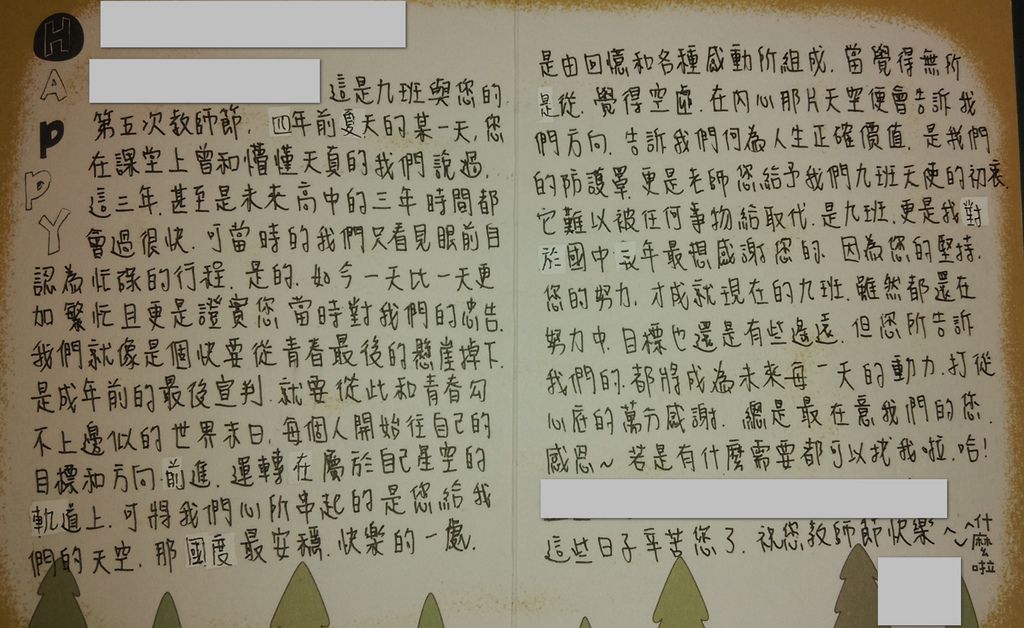 HAPPY
這是九班與您的
第五次教師節. 四年前夏天的某一天,您
在課堂上曾和懵懂天真的我們說過,
這三年,甚至是未來高中的三年時間都
會過很快.可當時的我們只看見眼前自
認為忙碌的行程.是的.如今一天比一天更
加繁忙且更是證實您當時對我們的忠告.
我們就像是個快要從青春最後的懸崖掉下.
是成年前的最後宣判.就要從此和青春勾
不上邊似的世界末日.每個人開始往自己的
目標和方向前進.運轉在屬於自己星空的
軌道上.可將我們心所串起的是您給我
們的天空.那國度最安穩.快樂的一處.
是由回憶和各種感動所組成.當覺得無所
是從.覺得空虛.在內心那片天空便會告訴我
們方向.告訴我們何為人生正確價值.是我們
的防護罩.更是老師您給予我們九班天使的初衷.
它難以被任何事物給取代.是九班.更是我對
於國中三年最想感謝您的.因為您的堅持.
您的努力.才成就現在的九班.雖然都還在
努力中.目標也還是有些遙遠.但您所告訴
我們的.都將成為未來每一天的動力.打從
心底的萬方感謝.總是最在意我們的您.
感恩~若是有什麼需要都可以找我啦.哈!
這些日子辛苦您了.祝您教師節快樂~
什麼啦